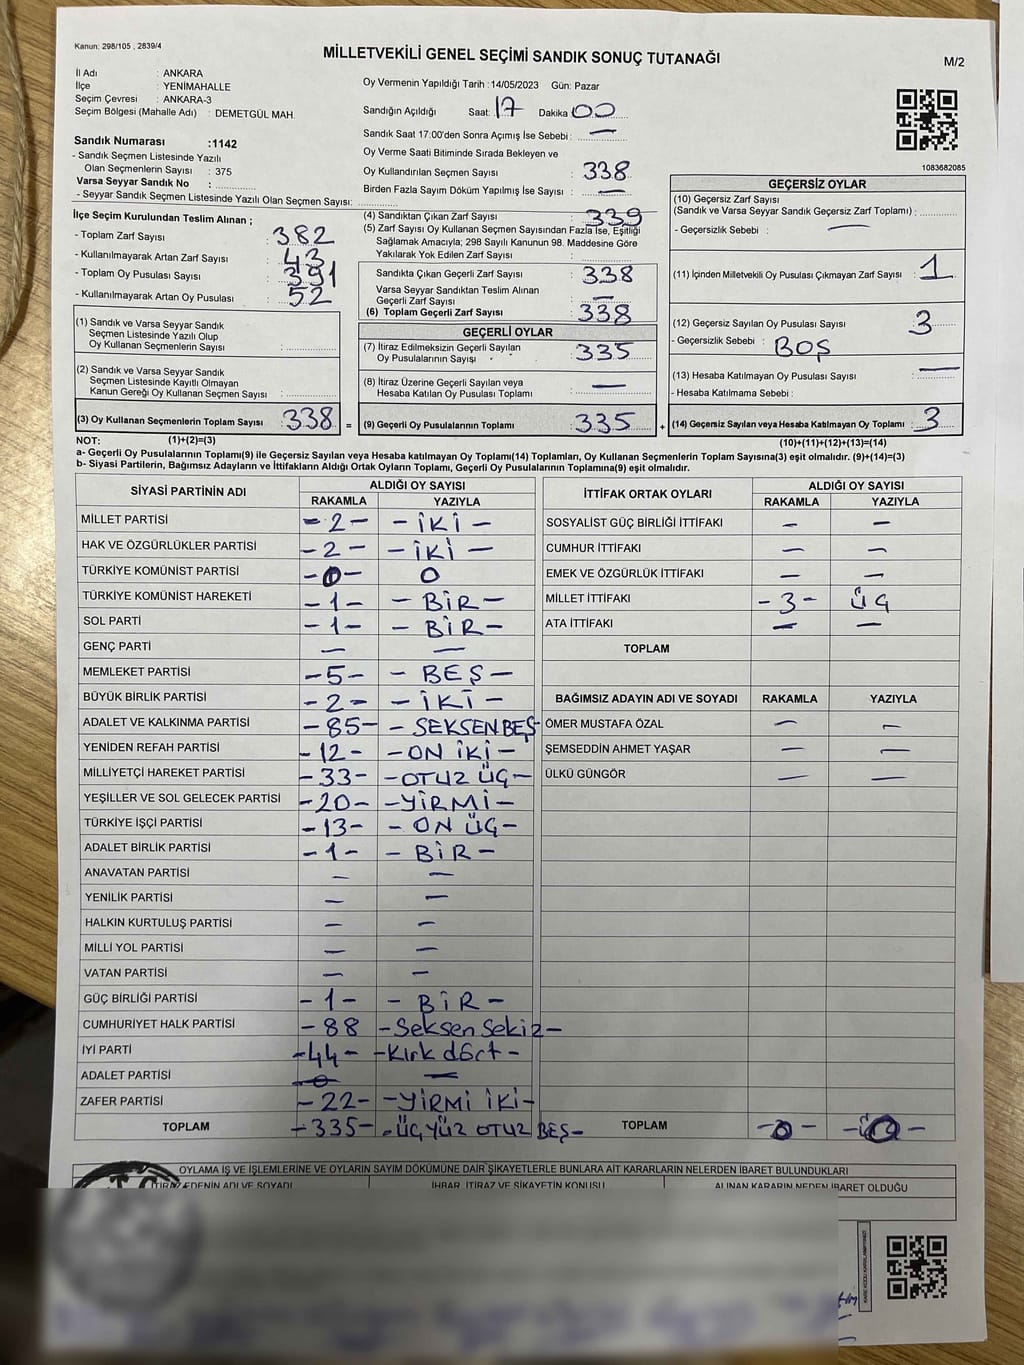 Kanun: 298/105 , 2839/4
MİLLETVEKİLİ GENEL SEÇİMİ SANDIK SONUÇ TUTANAĞI
M/2
İl Adı : ANKARA
İlçe : YENİMAHALLE
Seçim Çevresi : ANKARA-3
Seçim Bölgesi (Mahalle Adı) : DEMETGÜL MAH.
Oy Vermenin Yapıldığı Tarih :14/05/2023 Gün: Pazar
Sandığın Açıldığı Saat: 17 Dakika: 00
Sandık Saat 17:00'den Sonra Açımış İse Sebebi : —
Oy Verme Saati Bitiminde Sırada Bekleyen ve
Oy Kullandırılan Seçmen Sayısı : 338
Birden Fazla Sayım Döküm Yapılmış İse Sayısı : —
1083682085
Sandık Numarası :1142
- Sandık Seçmen Listesinde Yazılı
Olan Seçmenlerin Sayısı : 375
Varsa Seyyar Sandık No :
- Seyyar Sandık Seçmen Listesinde Yazılı Olan Seçmen Sayısı:
İlçe Seçim Kurulundan Teslim Alınan ;
- Toplam Zarf Sayısı : 382
- Kullanılmayarak Artan Zarf Sayısı : 43
- Toplam Oy Pusulası Sayısı : 391
- Kullanılmayarak Artan Oy Pusulası : 52
(1) Sandık ve Varsa Seyyar Sandık
Seçmen Listesinde Yazılı Olup
Oy Kullanan Seçmenlerin Sayısı :
(2) Sandık ve Varsa Seyyar Sandık
Seçmen Listesinde Kayıtlı Olmayan
Kanun Gereği Oy Kullanan Seçmen Sayısı :
(3) Oy Kullanan Seçmenlerin Toplam Sayısı : 338
(4) Sandıktan Çıkan Zarf Sayısı : 339
(5) Zarf Sayısı Oy Kullanan Seçmen Sayısından Fazla İse, Eşitliği
Sağlamak Amacıyla; 298 Sayılı Kanunun 98. Maddesine Göre
Yakılarak Yok Edilen Zarf Sayısı :
Sandıkta Çıkan Geçerli Zarf Sayısı : 338
Varsa Seyyar Sandıktan Teslim Alınan
Geçerli Zarf Sayısı : —
(6) Toplam Geçerli Zarf Sayısı : 338
GEÇERLİ OYLAR
(7) İtiraz Edilmeksizin Geçerli Sayılan
Oy Pusulalarının Sayısı : 335
(8) İtiraz Üzerine Geçerli Sayılan veya
Hesaba Katılan Oy Pusulası Toplamı : —
= (9) Geçerli Oy Pusulalarının Toplamı : 335 +
GEÇERSİZ OYLAR
(10) Geçersiz Zarf Sayısı
(Sandık ve Varsa Seyyar Sandık Geçersiz Zarf Toplamı) :
- Geçersizlik Sebebi : —
(11) İçinden Milletvekili Oy Pusulası Çıkmayan Zarf Sayısı : 1
(12) Geçersiz Sayılan Oy Pusulası Sayısı : 3
- Geçersizlik Sebebi : BOŞ
(13) Hesaba Katılmayan Oy Pusulası Sayısı : —
- Hesaba Katılmama Sebebi :
(14) Geçersiz Sayılan veya Hesaba Katılmayan Oy Toplamı : 3
NOT: (1)+(2)=(3)
(10)+(11)+(12)+(13)=(14)
a- Geçerli Oy Pusulalarının Toplamı(9) ile Geçersiz Sayılan veya Hesaba katılmayan Oy Toplamı(14) Toplamları, Oy Kullanan Seçmenlerin Toplam Sayısına(3) eşit olmalıdır. (9)+(14)=(3)
b- Siyasi Partilerin, Bağımsız Adayların ve İttifakların Aldığı Ortak Oyların Toplamı, Geçerli Oy Pusulalarının Toplamına(9) eşit olmalıdır.
SİYASİ PARTİNİN ADI ALDIĞI OY SAYISI
RAKAMLA YAZIYLA
MİLLET PARTİSİ -2- -İKİ-
HAK VE ÖZGÜRLÜKLER PARTİSİ -2- -İKİ-
TÜRKİYE KOMÜNİST PARTİSİ -0- 0
TÜRKİYE KOMÜNİST HAREKETİ -1- -BİR-
SOL PARTİ -1- -BİR-
GENÇ PARTİ — —
MEMLEKET PARTİSİ -5- -BEŞ-
BÜYÜK BİRLİK PARTİSİ -2- -İKİ-
ADALET VE KALKINMA PARTİSİ -85- -SEKSENBEŞ-
YENİDEN REFAH PARTİSİ -12- -ON İKİ-
MİLLİYETÇİ HAREKET PARTİSİ -33- -OTUZ ÜÇ-
YEŞİLLER VE SOL GELECEK PARTİSİ -20- -YİRMİ-
TÜRKİYE İŞÇİ PARTİSİ -13- -ON ÜÇ-
ADALET BİRLİK PARTİSİ -1- -BİR-
ANAVATAN PARTİSİ — —
YENİLİK PARTİSİ — —
HALKIN KURTULUŞ PARTİSİ — —
MİLLİ YOL PARTİSİ — —
VATAN PARTİSİ — —
GÜÇ BİRLİĞİ PARTİSİ -1- -BİR-
CUMHURİYET HALK PARTİSİ -88 -Seksen sekiz-
İYİ PARTİ -44- -Kırk dört-
ADALET PARTİSİ -0- —
ZAFER PARTİSİ -22- -YİRMİ İKİ-
TOPLAM -335- -ÜÇYÜZ OTUZ BEŞ-
İTTİFAK ORTAK OYLARI ALDIĞI OY SAYISI
RAKAMLA YAZIYLA
SOSYALİST GÜÇ BİRLİĞİ İTTİFAKI — —
CUMHUR İTTİFAKI — —
EMEK VE ÖZGÜRLÜK İTTİFAKI — —
MİLLET İTTİFAKI -3- ÜÇ
ATA İTTİFAKI — —
TOPLAM
BAĞIMSIZ ADAYIN ADI VE SOYADI RAKAMLA YAZIYLA
ÖMER MUSTAFA ÖZAL — —
ŞEMSEDDİN AHMET YAŞAR — —
ÜLKÜ GÜNGÖR — —
TOPLAM -0-
OYLAMA İŞ VE İŞLEMLERİNE VE OYLARIN SAYIM DÖKÜMÜNE DAİR ŞİKAYETLERLE BUNLARA AİT KARARLARIN NELERDEN İBARET BULUNDUKLARI
İTİRAZ EDENİN ADI VE SOYADI İHBAR, İTİRAZ VE ŞİKAYETİN KONUSU ALINAN KARARIN NEDEN İBARET OLDUĞU